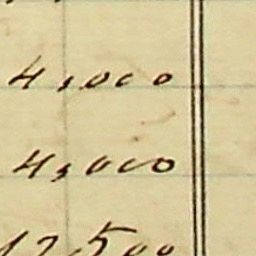 4,000
4,000
12,500